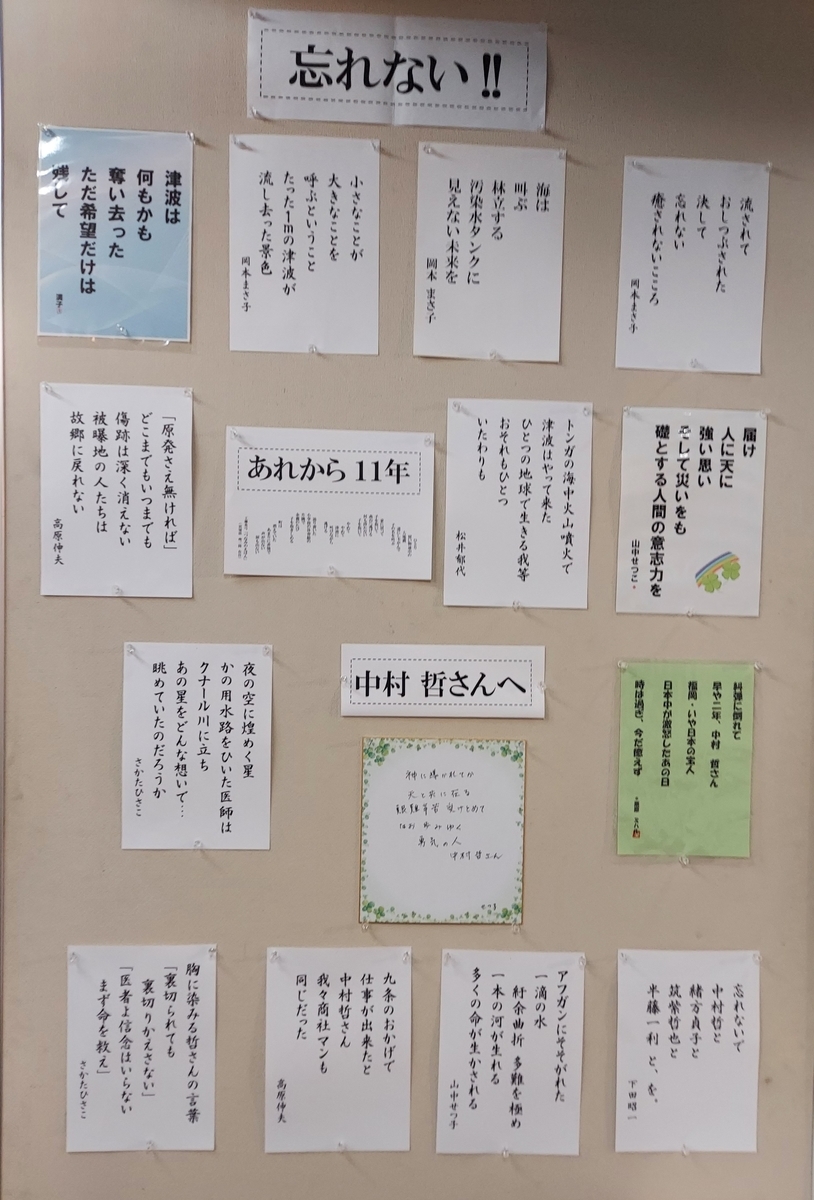 忘れない!!
流されて
おしつぶされた
決して
忘れない
癒されないこころ
岡本まさ子
海は
叫ぶ
林立する
汚染水タンクに
見えない未来を
岡本 まさ子
小さなことが
大きなことを
呼ぶということ
たった1mの津波が
流し去った景色
岡本まさ子
津波は
何もかも
奪い去った
ただ希望だけは
残して
届け
人に天に
強い思い
そして災いをも
礎とする人間の意志力を
山中せつこ
トンガの海中火山噴火で
津波はやって来た
ひとつの地球で生きる我等
おそれもひとつ
いたわりも
松井郁代
あれから11年
「原発さえ無ければ」
どこまでもいつまでも
傷跡は深く消えない
被曝地の人たちは
故郷に戻れない
高原伸夫
中村 哲さんへ
糾弾に倒れて
早や二年、中村 哲さん
福岡・いや日本の宝人
日本中が激怒したあの日
時は過ぎ、今だ癒えず
神に導かれてか
天と共に在る
艱難辛苦 受けとめて
なお あゆみゆく
勇気の人
中村哲さん
夜の空に煌めく星
かの用水路をひいた医師は
クナール川に立ち
あの星をどんな想いで…
眺めていたのだろうか
さかたひさこ
忘れないで
中村哲と
緒方貞子と
筑紫哲也と
半藤一利 と、を。
下田昭一
アフガンにそそがれた
一滴の水
紆余曲折 多難を極め
一本の河が生れる
多くの命が生かされる
山中せつ子
九条のおかげで
仕事が出来たと
中村哲さん
我々商社マンも
同じだった
高原伸夫
胸に染みる哲さんの言葉
「裏切られても
裏切りかえさない」
「医者よ信念はいらない
まず命を救え」
さかたひさこ